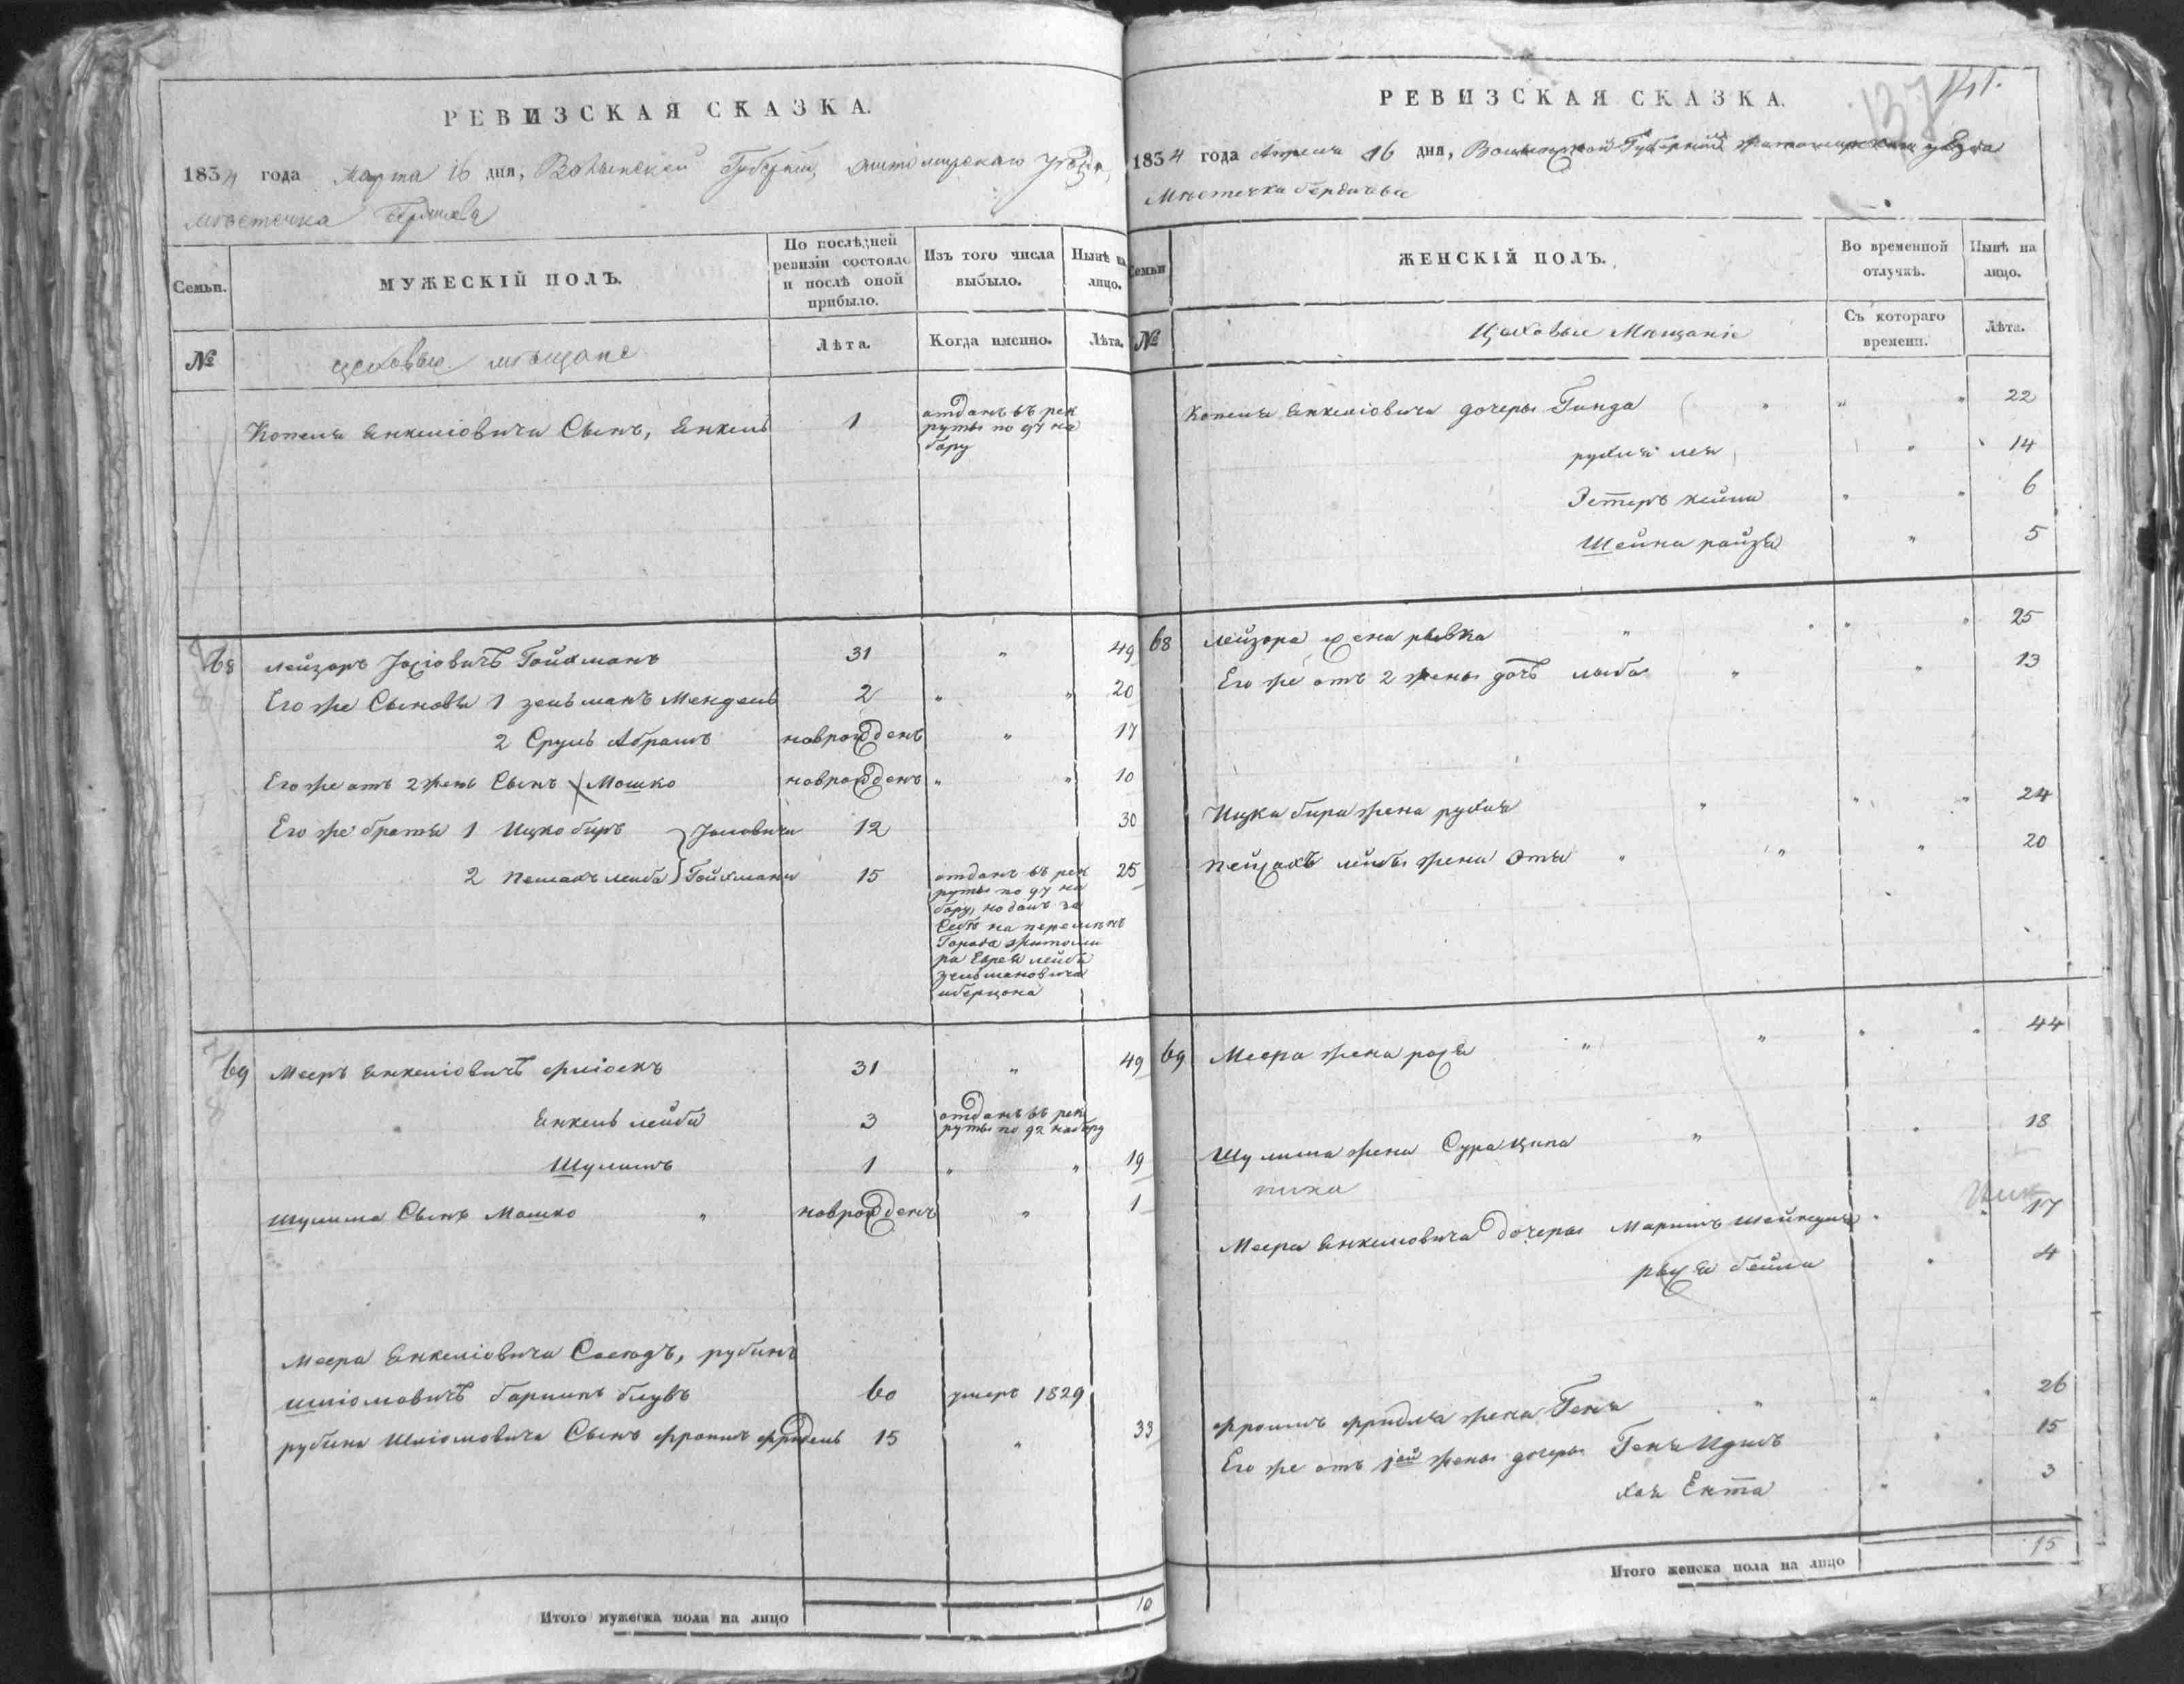 РЕВИЗСКАЯ СКАЗКА.
1834 года Марта 16 дня, Волынской Губернии, Житомирскаго уезда,
местечка Бердичева
Семьи.
МУЖЕСКІЙ ПОЛЪ.
По послѣдней ревизіи состояло и послѣ оной прибыло.
Изъ того числа выбыло.
Нынѣ на лицо.
№
цеховые мещане
Лѣта.
Когда именно.
Лѣта.
Копеля Янкеліовича Сынъ, Янкель 1 отданъ въ рек
руты по 97 на
бору
68 Лейзоръ Іосіовичъ Гойхманъ 31 " 49
Его же Сыновья 1 Зельманъ Мендель 2 " " 20
2 Сруль Абрамъ новрожденъ " 17
Его же отъ 2 жены Сынъ Мошко новрожденъ " " 10
Его же братья 1 Ицко биръ Іосіовичи 12 30
2 Пейсахъ лейба Гойхманы 15 отданъ въ рек 25
руты по 97 на
бору, но далъ за
Себя на перемѣнъ
Города Житоми
ра Еврея лейба
Зельмановича
69 Мееръ Янкеліовичъ 31 " 49
Янкель лейба 3 отданъ въ рек
руты по 92 набору
Шулимъ 1 " " 19
Шулима Сынъ Мошко " новрожденъ " 1
Меера Янкеліовича Соседъ, рубинъ
Шліомовичъ 60 умеръ 1829
рубина Шліомовича Сынъ Фроимъ Фридель 15 " 33
Итого мужеска пола на лицо 10
137 141.
РЕВИЗСКАЯ СКАЗКА.
1834 года Апреля 16 дня, Волынской Губерніи Житомирскаго уезда
Местечка бердичева
Семьи
ЖЕНСКІЙ ПОЛЪ.
Во временной отлучкѣ.
Нынѣ на лицо.
№
Цеховые Мещане
Съ котораго времени.
Лѣта.
Копеля Янкеліовича дочеры Гинда " " " 22
рухля лея " 14
Эстеръ хейма " " 6
Шейна райзя " 5
68 Лейзора жена рывка " " " 25
Его же отъ 2 жены дочь лыба " " 13
Ицка бира жена рухля " " " 24
Пейсахъ лейбы жена Этя " " " 20
69 Меера жена " " " " 44
Шулима жена Сура ципа " " 18
Меера Янкеліовича дочеры Маримъ Шейндля " " 17
бейла " 4
Фроимъ Фридля жена Геня " " " 26
Его же отъ 1ой жены дочеры Геня Идисъ " 15
хая Ента " " 3
Итого женска пола на лицо 15